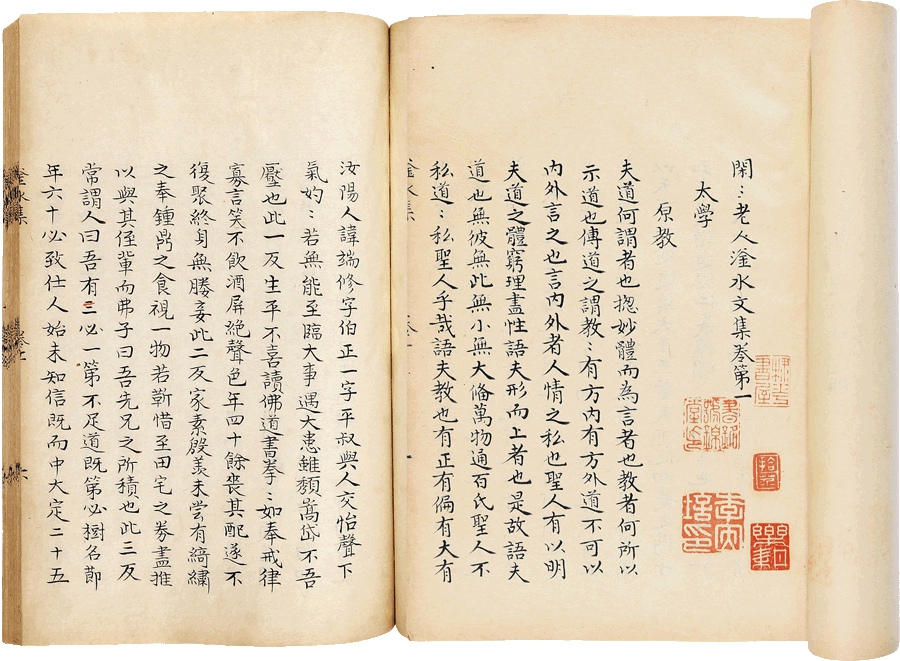 閑〻老人滏水文集卷第一
太學
原教
夫道何謂者也揔妙體而為言者也教者何所以
示道也傳道之謂教〻有方內有方外道不可以
內外言之也言內外者人情之私也聖人有以明
夫道之體窮理盡性語夫形而上者也是故語夫
道也無彼無此無小無大俻萬物通百氏聖人不
私道〻私聖人乎哉語夫教也有正有偏有大有
汝陽人諱端修字伯正一字平叔與人交怡聲下
氣妁〻若無能至臨大事遇大患雖頽嵩岱不吾
壓也此一反生平不喜讀佛道書拳〻如奉戒律
寡言笑不飲酒屏絕聲色年四十餘喪其配遂不
復娶終身無媵妾此二反家素殷羙未尝有綺繡
之奉鍾鼎之食視一物若靳惜至田宅之券盡推
以與其侄輩而弗子曰吾先兄之所積也此三反
常謂人曰吾有三必一第不足道既第必樹名節
年六十必致仕人始未知信既而中大定二十五
滏水集